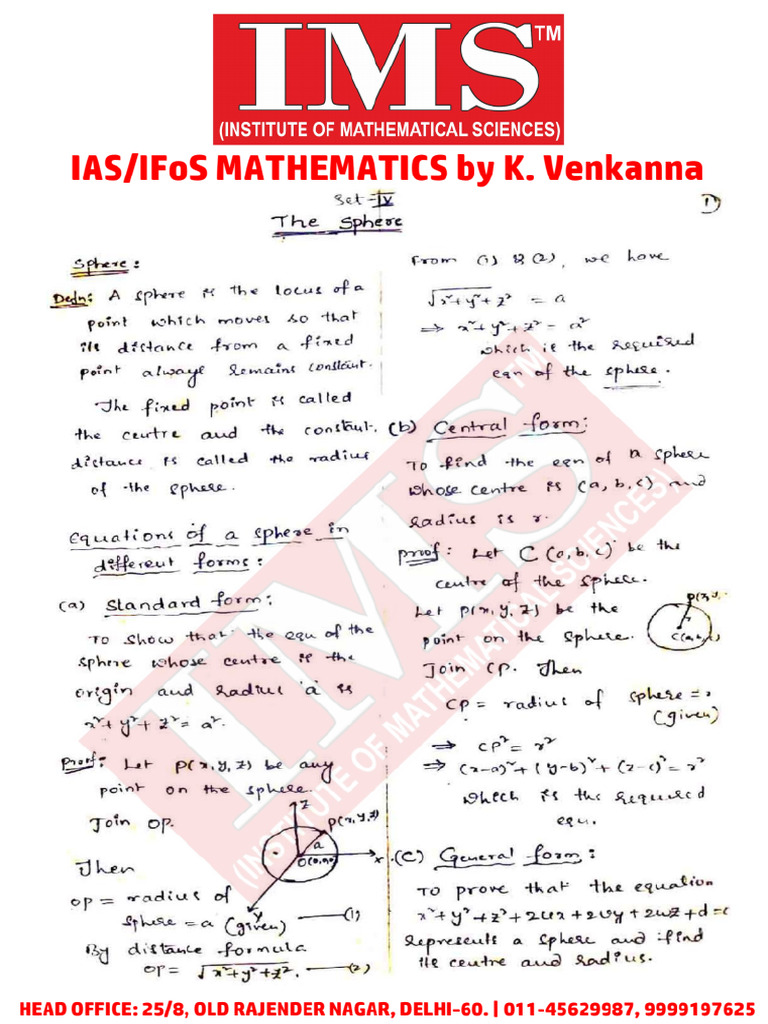 IMS™
(INSTITUTE OF MATHEMATICAL SCIENCES)
IAS/IFoS MATHEMATICS by K. Venkanna
Set-IV
The Sphere
1
Sphere:
Defn: A sphere is the locus of a
point which moves so that
its distance from a fixed
point always remains constant.
The fixed point is called
the centre and the constant
distance is called the radius
of the sphere.
Equations of a sphere in
different forms:
(a) Standard form:
To show that the equ of the
sphere whose centre is the
origin and radius 'a' is
x²+y²+z²=a².
Proof: Let P(x,y,z) be any
point on the sphere.
Join OP.
z
P(x,y,z)
a
O(0,0,0)
x
y
Then
OP = radius of
sphere = a (given) —(1)
By distance formula
OP = √x²+y²+z². —(2)
From (1) & (2), we have
√x²+y²+z² = a
⇒ x²+y²+z² = a²
which is the required
eqn of the sphere.
(b) Central form:
To find the eqn of a sphere
whose centre is (a,b,c) and
radius is r.
proof: Let C(a,b,c) be the
centre of the sphere.
Let P(x,y,z) be the
point on the sphere.
Join CP. Then
CP = radius of sphere =
(given)
⇒ CP² = r²
⇒ (x-a)²+(y-b)²+(z-c)²=r²
which is the required
equ.
(C) General form:
To prove that the equation
x²+y²+z²+2ux+2vy+2wz+d=0
represents a sphere and find
its centre and radius.
IMS™
(INSTITUTE OF MATHEMATICAL SCIENCES)
HEAD OFFICE: 25/8, OLD RAJENDER NAGAR, DELHI-60. | 011-45629987, 9999197625